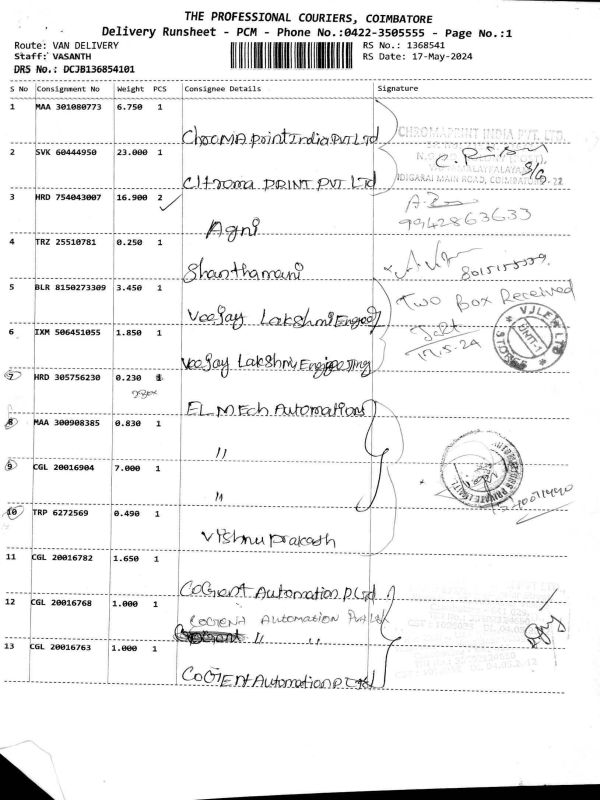 THE PROFESSIONAL COURIERS, COIMBATORE
Delivery Runsheet - PCM - Phone No.:0422-3505555 - Page No.:1
Route: VAN DELIVERY
RS No.: 1368541
Staff: VASANTH
RS Date: 17-May-2024
DRS No.: DCJB136854101
S No Consignment No Weight PCS Consignee Details Signature
1 MAA 301080773 6.750 1
ChroMA Print India PVT Ltd
CHROMAPRINT INDIA PVT. LTD.
2 SVK 60444950 23.000 1
IDIGARAI MAIN ROAD, COIMBATORE - 22
Chroma PRINT PVT Ltd
3 HRD 754043007 16.900 2
9942863633
Agni
4 TRZ 25510781 0.250 1
Shanthamani
5 BLR 8150273309 3.450 1
Two Box Received
Veejay Lakshmi Engee
VJLE LTD
STORES
UNIT-1
6 IXM 506451055 1.850 1
17.5.24
Veejay Lakshmi Engineesing
7 HRD 305756230 0.230
EL MEch Automations
8 MAA 300908385 0.830 1
"
9 CGL 20016904 7.000 1
"
10 TRP 6272569 0.490 1
Vishnu prakash
11 CGL 20016782 1.650 1
CoGent Automation P Ltd
12 CGL 20016768 1.000 1
COGENT AUtomATION Pvt Ltd
" "
13 CGL 20016763 1.000 1
CoGent Automation P Ltd